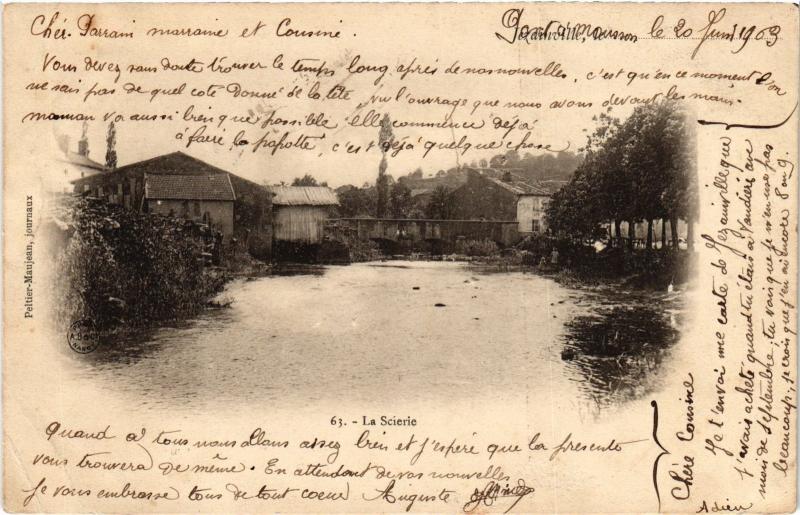 Cher Parrain marraine et Cousine.
Pont a Mousson le 20 Juin 1903
Jezainville, le
Vous devez sans doute trouver le temps long après de nos nouvelles, c'est qu'en ce moment on
ne sais pas de quel coté Donné de la tête, vu l'ouvrage que nous avons devant les mains.
maman va aussi bien que possible elle commence déjà
à faire la papotte, c'est déjà quelque chose
Peltier-Maujean, journaux
63. - La Scierie
Quand à tous nous allons assez bien et j'espère que la présente
vous trouvera de même. En attendant de vos nouvelles
Je vous embrasse tous de tout coeur Auguste
Chère Cousine
Je t'envoi une carte de Jezainville que
j'avais acheté quand tu étais à Vandières au
mois de septembre, tu vois que je n'en use pas
beaucoup, je crois que j'en ai encore 8 ou 9.
Adieu